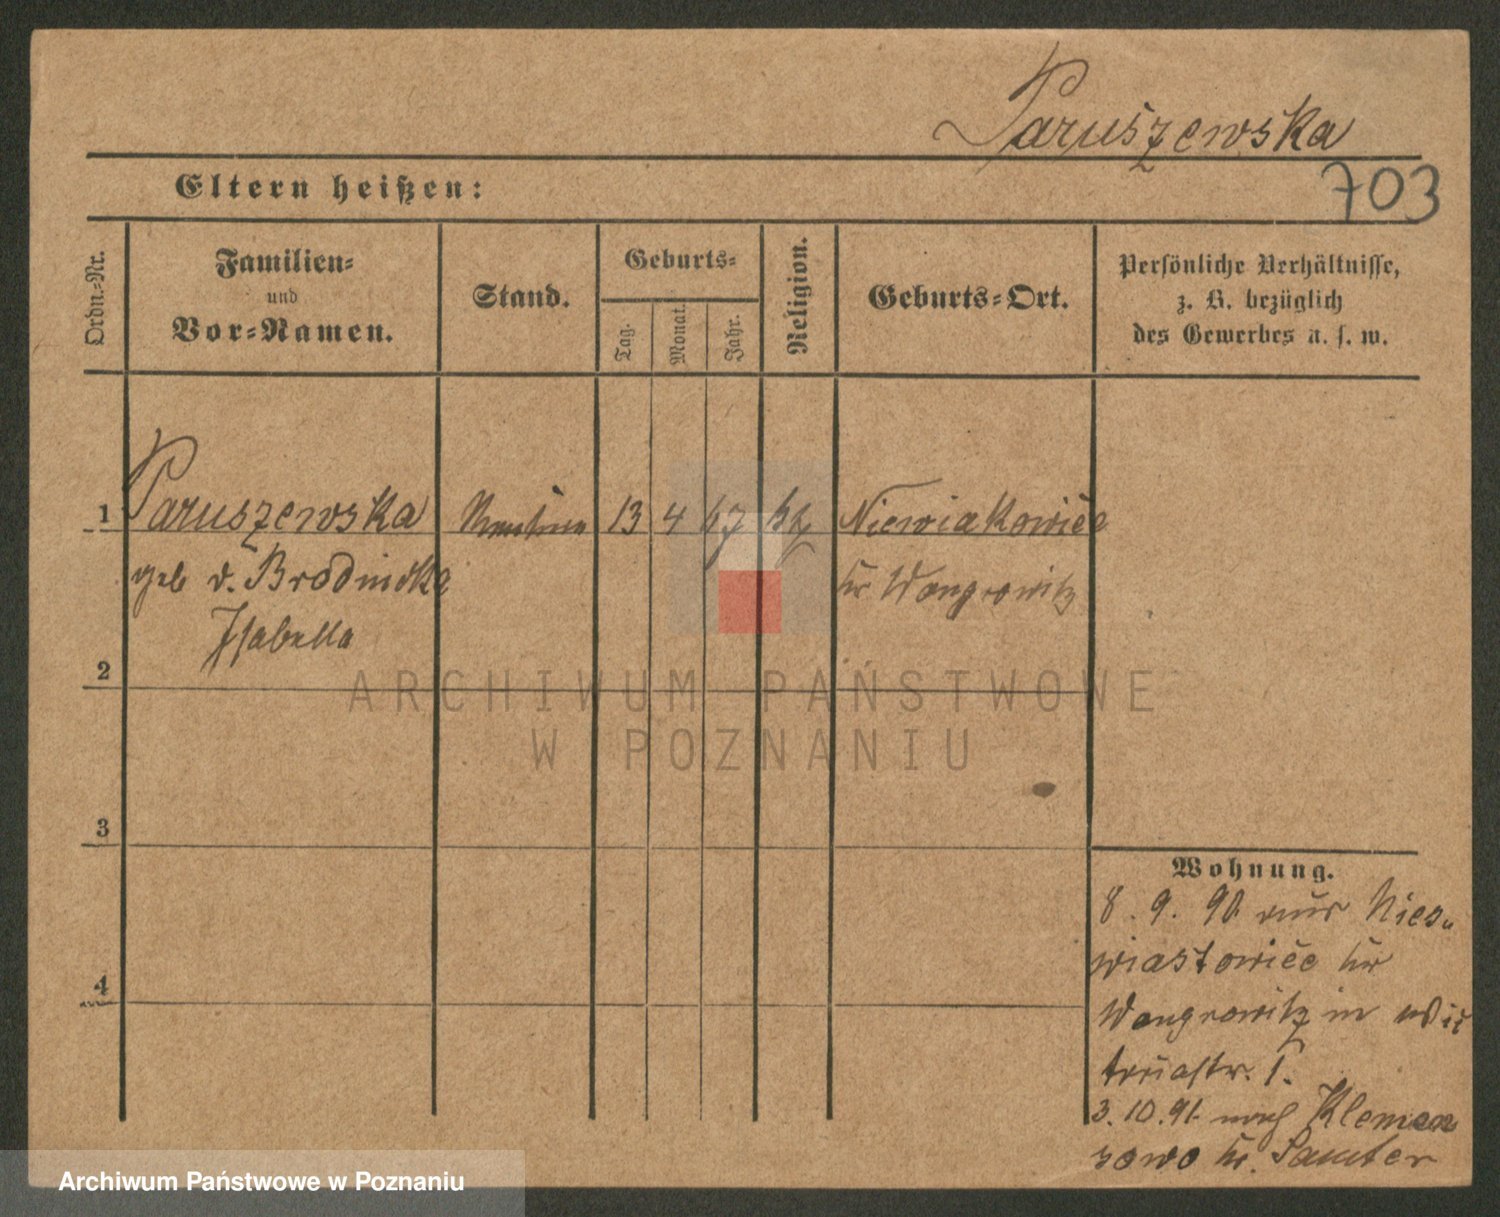 Paruszewska
703
Eltern heißen:
Ordn.-Nr.
Familien-
und
Vor-Namen.
Stand.
Geburts-
Tag.
Monat.
Jahr.
Religion.
Geburts-Ort.
Persönliche Verhältnisse,
z. B. bezüglich
des Gewerbes u. s. w.
1 Paruszewska 13 4 67 kt Niewiakowice
geb v. Brodnicka Kr Wongrowitz
Isabella
2
3
4
Wohnung.
8. 9. 90 aus Nies-
wiastowice Kr
Wongrowitz in
3. 10. 91. nach Klemen
sowo Kr. Samter
ARCHIWUM PAŃSTWOWE
W POZNANIU
Archiwum Państwowe w Poznaniu